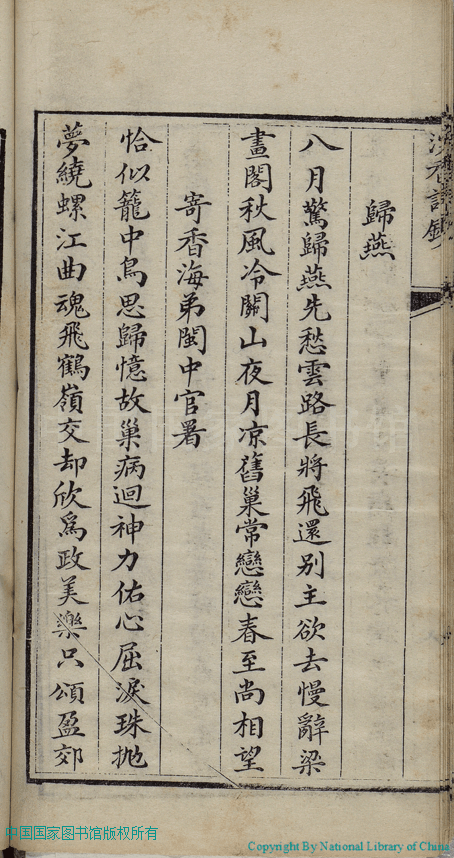 歸燕
八月驚歸燕先愁雲路長將飛還別主欲去慢辭梁
畫閣秋風冷關山夜月凉舊巢常戀戀春至尚相望
寄香海弟閩中官署
恰似籠中鳥思歸憶故巢病迴神力佑心屈淚珠拋
夢繞螺江曲魂飛鶴嶺交却欣爲政美樂只頌盈郊
中国国家图书馆版权所有
Copyright By National Library of China